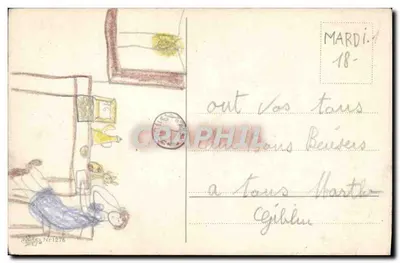 MARDI.
18-
ont vos tous
Bons Baisers
a tous Marthe
Giblin
CPHRPHIL
N° 1278